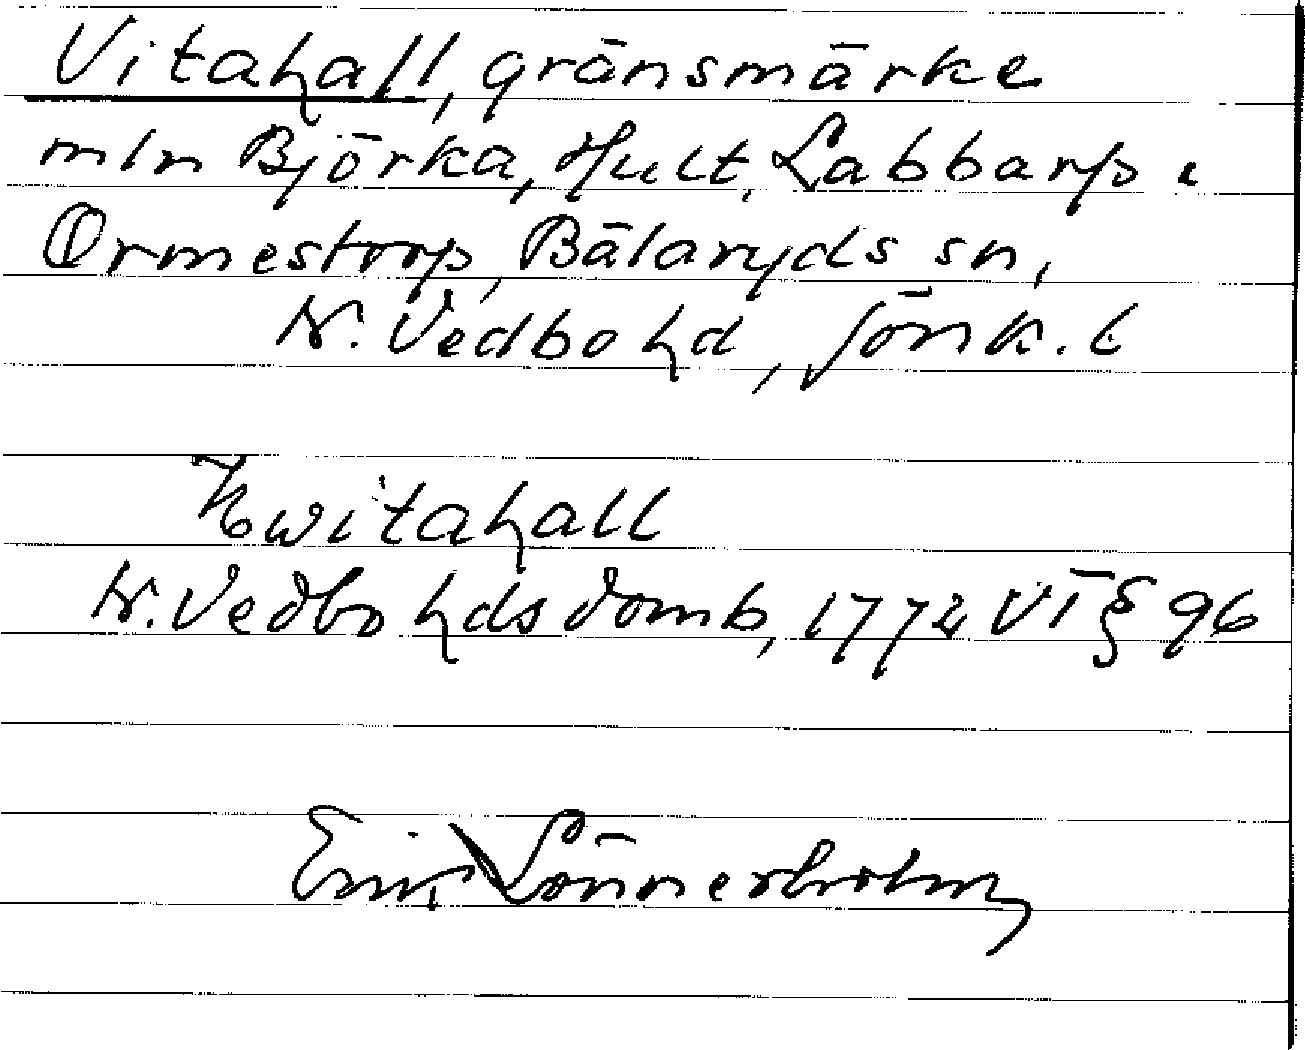 Vitahall, gränsmärke
mln Björka, Hult, Labbarp i
Ormestorp, Bälaryds sn,
N. Vedbo hd, Jönk. l
Hwitahall
N. Vedbo hds domb, 1772 VI § 96
Erik Lönnerholm